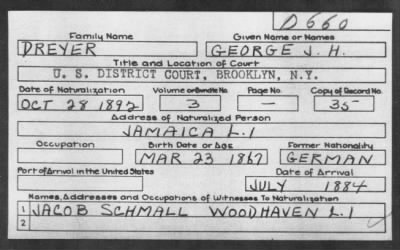 D660
Family Name Given Name or Names
DREYER GEORGE J. H.
Title and Location of Court
U. S. DISTRICT COURT, BROOKLYN, N.Y.
Date of Naturalization Volume or Bundle No. Page No. Copy of Record No.
OCT 28 1892 3 — 35
Address of Naturalized Person
JAMAICA L.I
Occupation Birth Date or Age Former Nationality
MAR 23 1867 GERMAN
Port of Arrival in the United States Date of Arrival
JULY 1884
Names, Addresses and Occupations of Witnesses To Naturalization
1 JACOB SCHMALL WOODHAVEN L.I
2